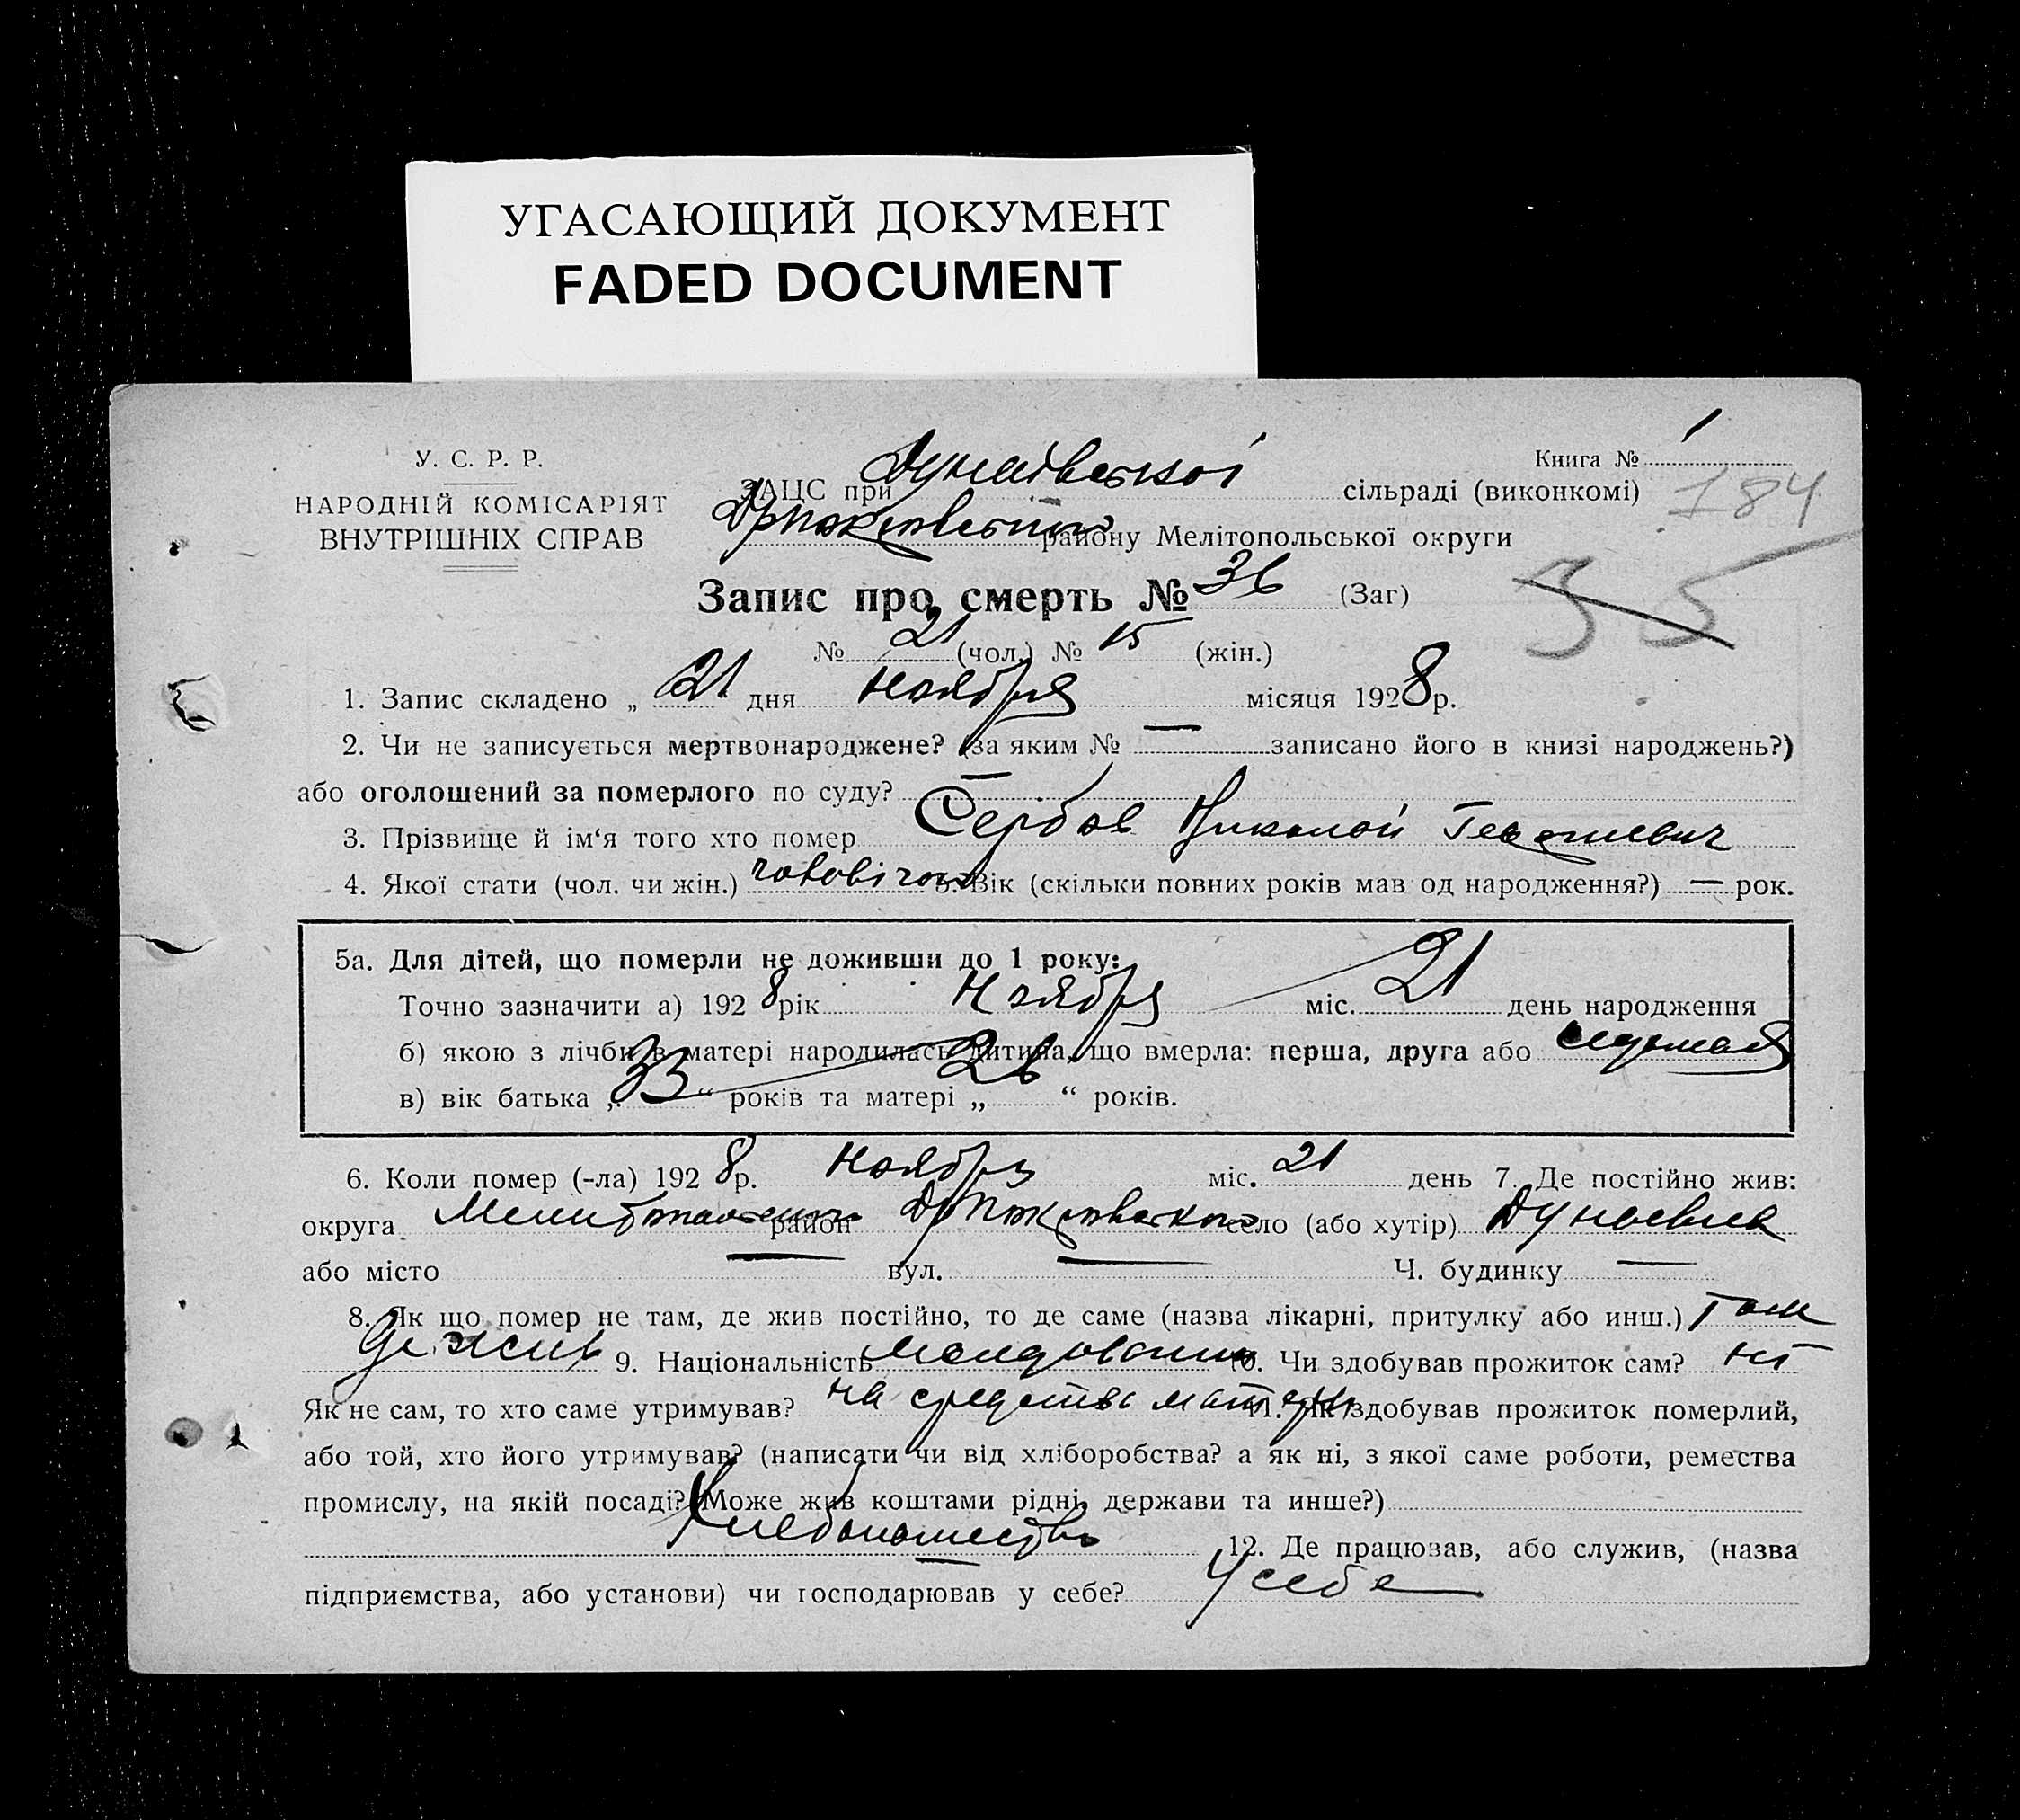 УГАСАЮЩИЙ ДОКУМЕНТ
FADED DOCUMENT
У. С. Р. Р.
НАРОДНІЙ КОМІСАРІЯТ
ВНУТРІШНІХ СПРАВ
Книга № 1
ЗАЦС при Дунаівської сільраді (виконкомі) 184
району Мелітопольської округи
Запис про смерть № 36 (Заг) 35
№ 21 (чол.) № 15 (жін.)
1. Запис складено „ 21 дня Ноября місяця 1928 р.
2. Чи не записується мертвонароджене? (за яким № — записано його в книзі народжень?)
або оголошений за померлого по суду? —
3. Прізвище й ім‘я того хто помер Сербов Николай Георгиевич
4. Якої стати (чол. чи жін.) чоловічої 5. Вік (скільки повних років мав од народження?) — рок.
5а. Для дітей, що померли не доживши до 1 року:
Точно зазначити а) 1928 рік Ноября міс. 21 день народження
б) якою з лічби в матері народилась дитина, що вмерла: перша, друга або седьмая
в) вік батька „ 33 “ років та матері „ 26 “ років.
6. Коли помер (-ла) 1928 р. Ноября міс. 21 день 7. Де постійно жив:
округа район село (або хутір) Дунаевка
або місто — вул. — Ч. будинку —
8. Як що помер не там, де жив постійно, то де саме (назва лікарні, притулку або инш.) там
де жив 9. Національність молдован 10. Чи здобував прожиток сам? ні
Як не сам, то хто саме утримував? на средства матери 11. Як здобував прожиток померлий,
або той, хто його утримував? (написати чи від хліборобства? а як ні, з якої саме роботи, ремества
промислу, на якій посаді? Може жив коштами рідні, держави та инше?)
Хлебопашество 12. Де працював, або служив, (назва
підприємства, або установи) чи господарював у себе? У себе